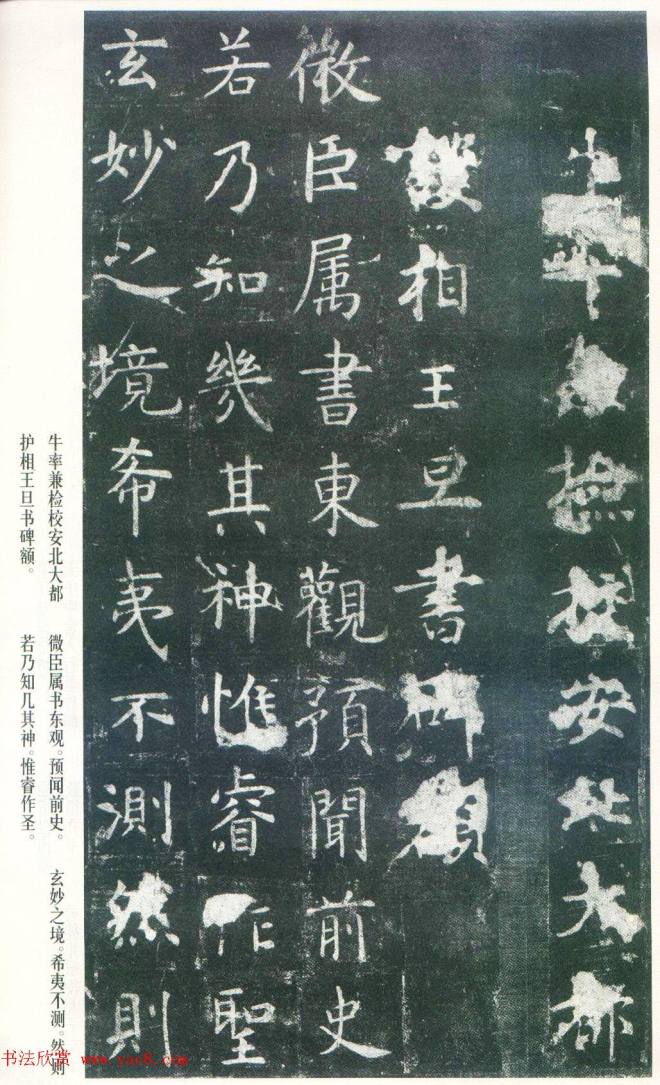 牛率兼检校安北大都
護相王旦書碑額
微臣属書東觀預聞前史
若乃知幾其神惟睿作聖
玄妙之境希夷不測然則
牛率兼检校安北大都
护相王旦书碑额。
微臣属书东观。预闻前史。
若乃知几其神。惟睿作圣。
玄妙之境。希夷不测。然则
书法欣赏 www.yac8.com